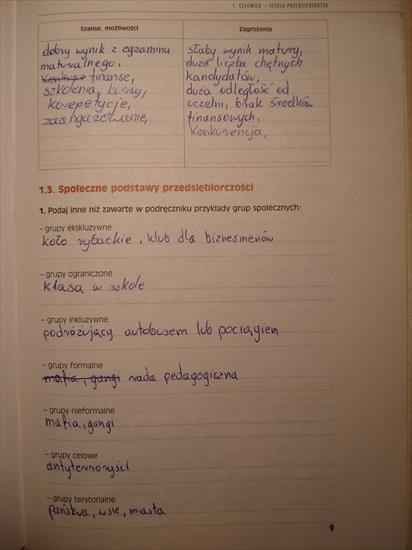 1. CZŁOWIEK – ISTOTA PRZEDSIĘBIORCZA
Szanse, możliwości
Zagrożenia
dobry wynik z egzaminu
maturalnego.
finanse,
szkolenia, kursy,
korepetycje,
zaangażowanie,
słaby wynik matury,
duża liczba chętnych
kandydatów,
duża odległość od
uczelni, brak środków
finansowych,
konkurencja,
1.3. Społeczne podstawy przedsiębiorczości
1. Podaj inne niż zawarte w podręczniku przykłady grup społecznych:
– grupy ekskluzywne
koło rybackie, klub dla biznesmenów
– grupy ograniczone
klasa w szkole
– grupy inkluzywne
podróżujący autobusem lub pociągiem
– grupy formalne
mafia, gangi rada pedagogiczna
– grupy nieformalne
mafia, gangi
– grupy celowe
antyterroryści
– grupy terytorialne
państwa, wsie, miasta
9